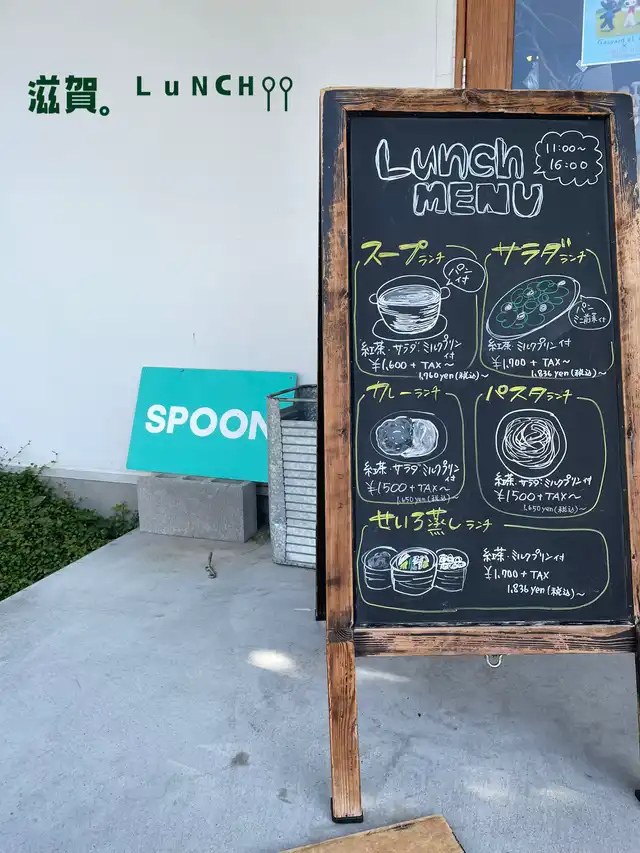 滋賀。 LuNCH
Lunch
MENU
11:00~
16:00
スープランチ
パン
付
紅茶・サラダ・ミルクプリン付
¥1,600 + TAX~
1,760yen(税込)~
サラダランチ
パン
ミニ前菜付
紅茶・ミルクプリン付
¥1,700 + TAX~
1,836yen(税込)~
カレーランチ
紅茶・サラダ・ミルクプリン付
¥1500+TAX~
1,650yen(税込)~
パスタランチ
紅茶・サラダ・ミルクプリン付
¥1500+TAX~
1,650yen(税込)~
せいろ蒸しランチ
紅茶・ミルクプリン付
¥1,700 + TAX
1,836yen(税込)~
SPOON